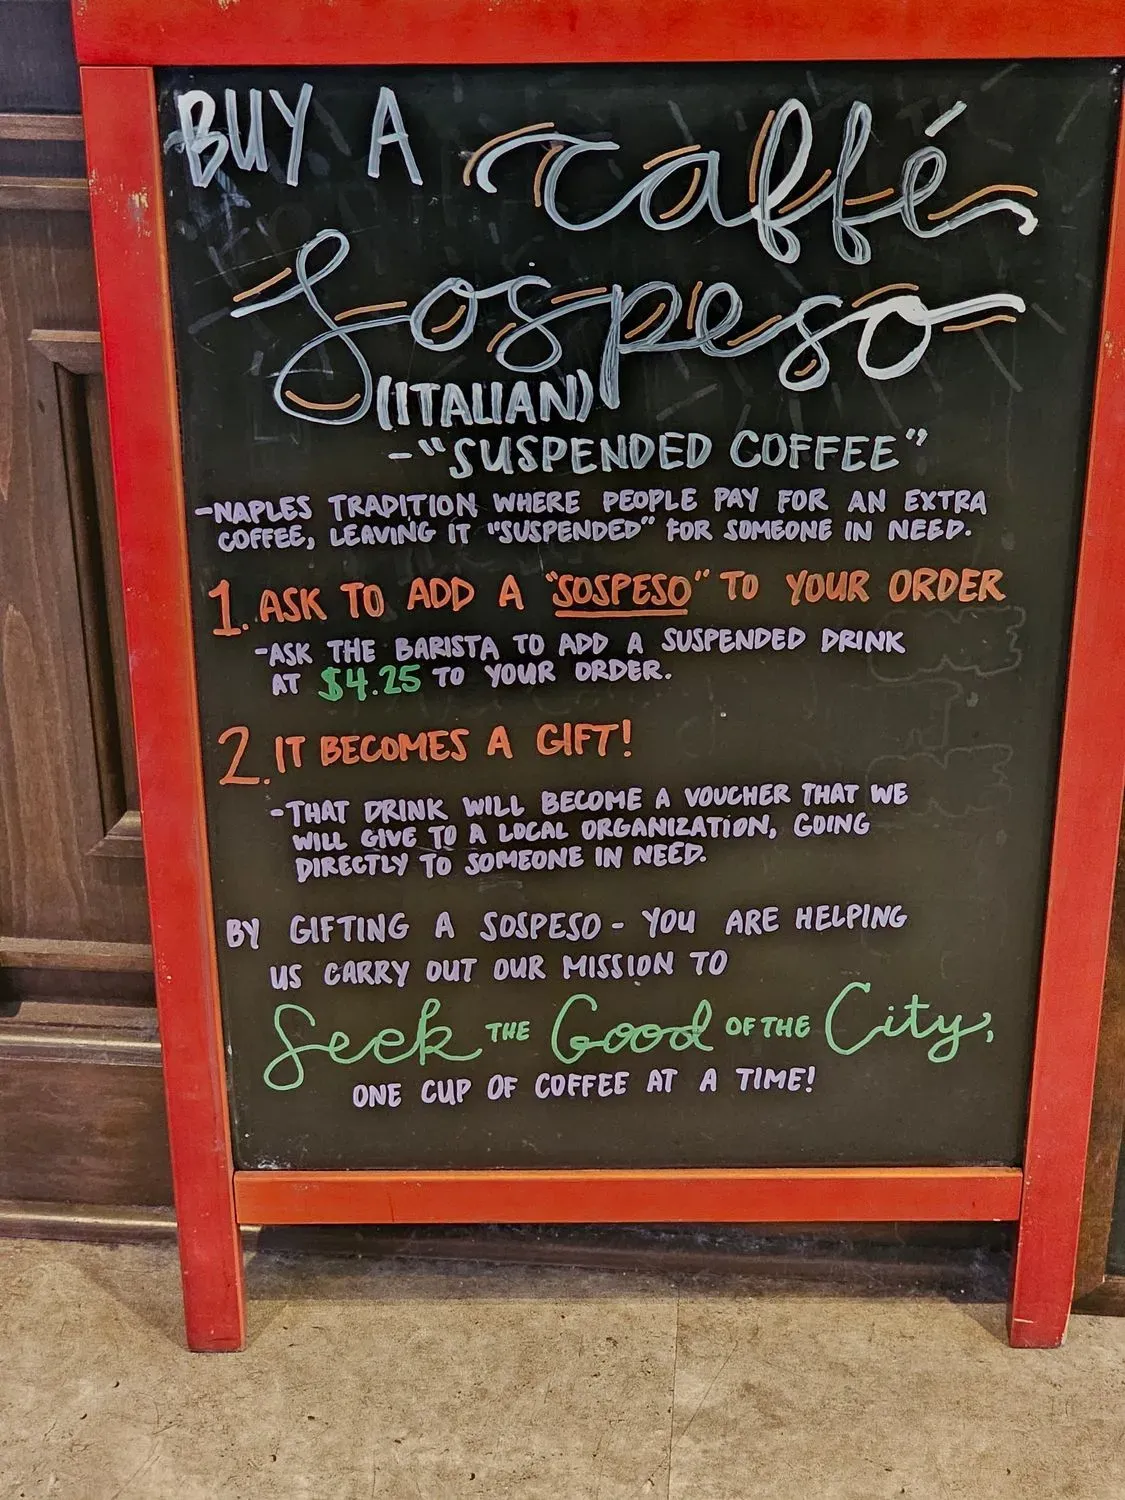 BUY A Caffé
Sospeso
(ITALIAN)
-"SUSPENDED COFFEE"
-NAPLES TRADITION WHERE PEOPLE PAY FOR AN EXTRA
COFFEE, LEAVING IT "SUSPENDED" FOR SOMEONE IN NEED.
1. ASK TO ADD A "SOSPESO" TO YOUR ORDER
-ASK THE BARISTA TO ADD A SUSPENDED DRINK
AT $4.25 TO YOUR ORDER.
2. IT BECOMES A GIFT!
-THAT DRINK WILL BECOME A VOUCHER THAT WE
WILL GIVE TO A LOCAL ORGANIZATION, GOING
DIRECTLY TO SOMEONE IN NEED.
BY GIFTING A SOSPESO - YOU ARE HELPING
US CARRY OUT OUR MISSION TO
Seek THE Good OF THE City,
ONE CUP OF COFFEE AT A TIME!